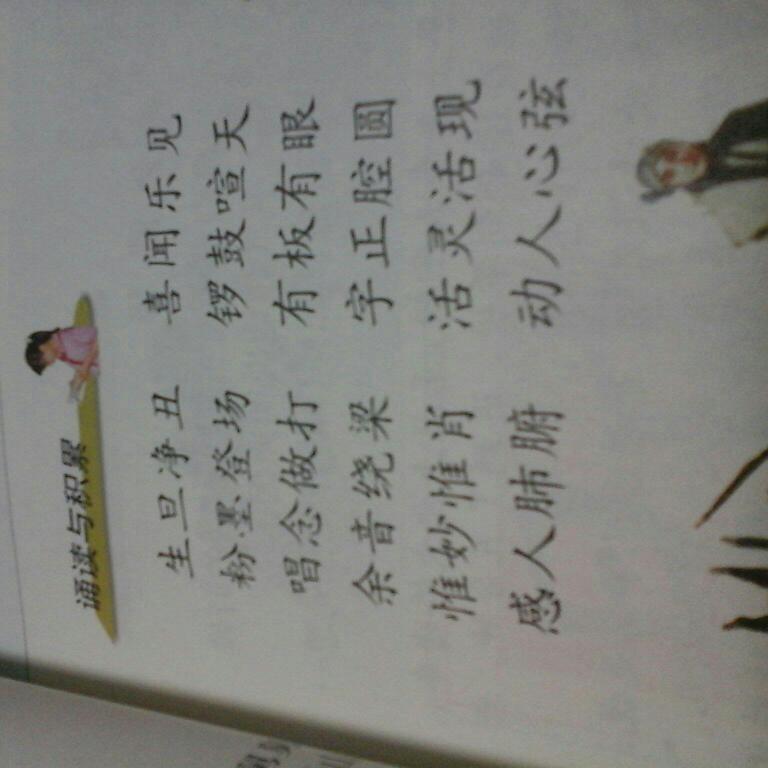 诵读与积累
生旦净丑 喜闻乐见
粉墨登场 锣鼓喧天
唱念做打 有板有眼
余音绕梁 字正腔圆
惟妙惟肖 活灵活现
感人肺腑 动人心弦